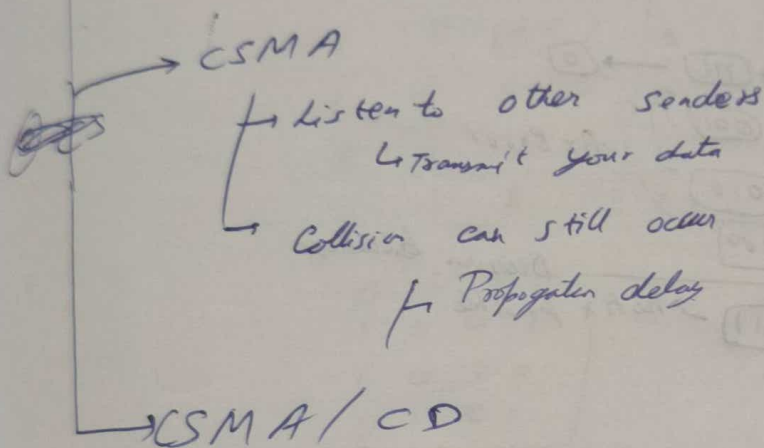 CSMA
Listen to other senders
Transmit your data
Collision can still occur
Propogation delay
CSMA / CD